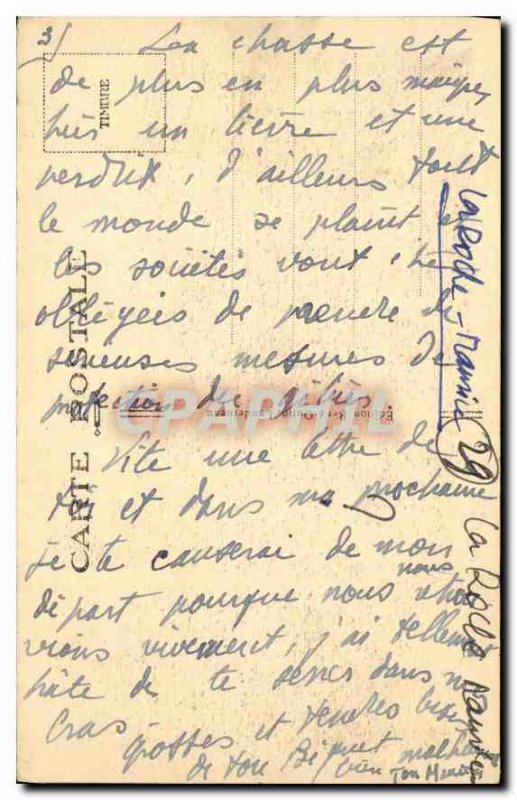 3)
La chasse est
de plus en plus maigre,
hier un lièvre et une
perdrix, d'ailleurs tout
le monde se plaint et
les sociétés vont être
obligées de prendre de
sérieuses mesures de
protection du gibier.
Vite une lettre de
toi et dans ma prochaine
je te causerai de mon
départ pourque nous nous
vivement, j'ai tellement
hâte de te serrer dans mes
bras
grosses et tendres
de ton
bien
CARTE POSTALE
TIMBRE
CPARAMA
La Roche-Maurice
29
La Roche Maurice